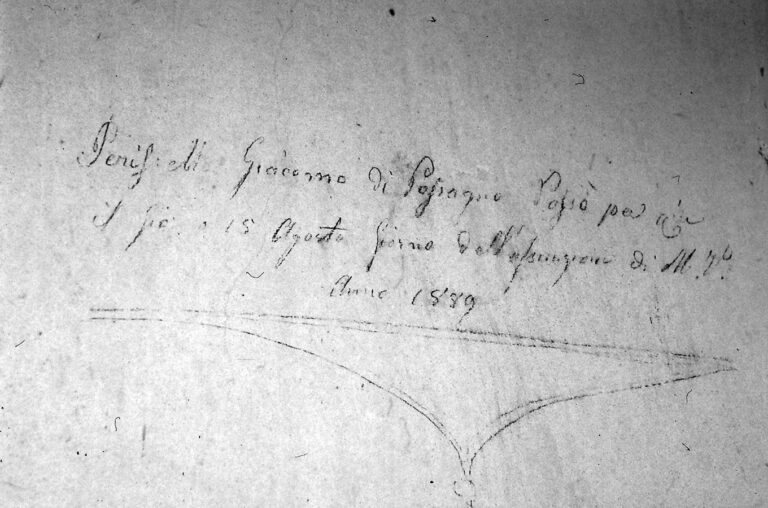 Giacomo di Possagno Passò per qui
il Gio. 15 Agosto Giorno dell'assunzione di M. V.
Anno 1889